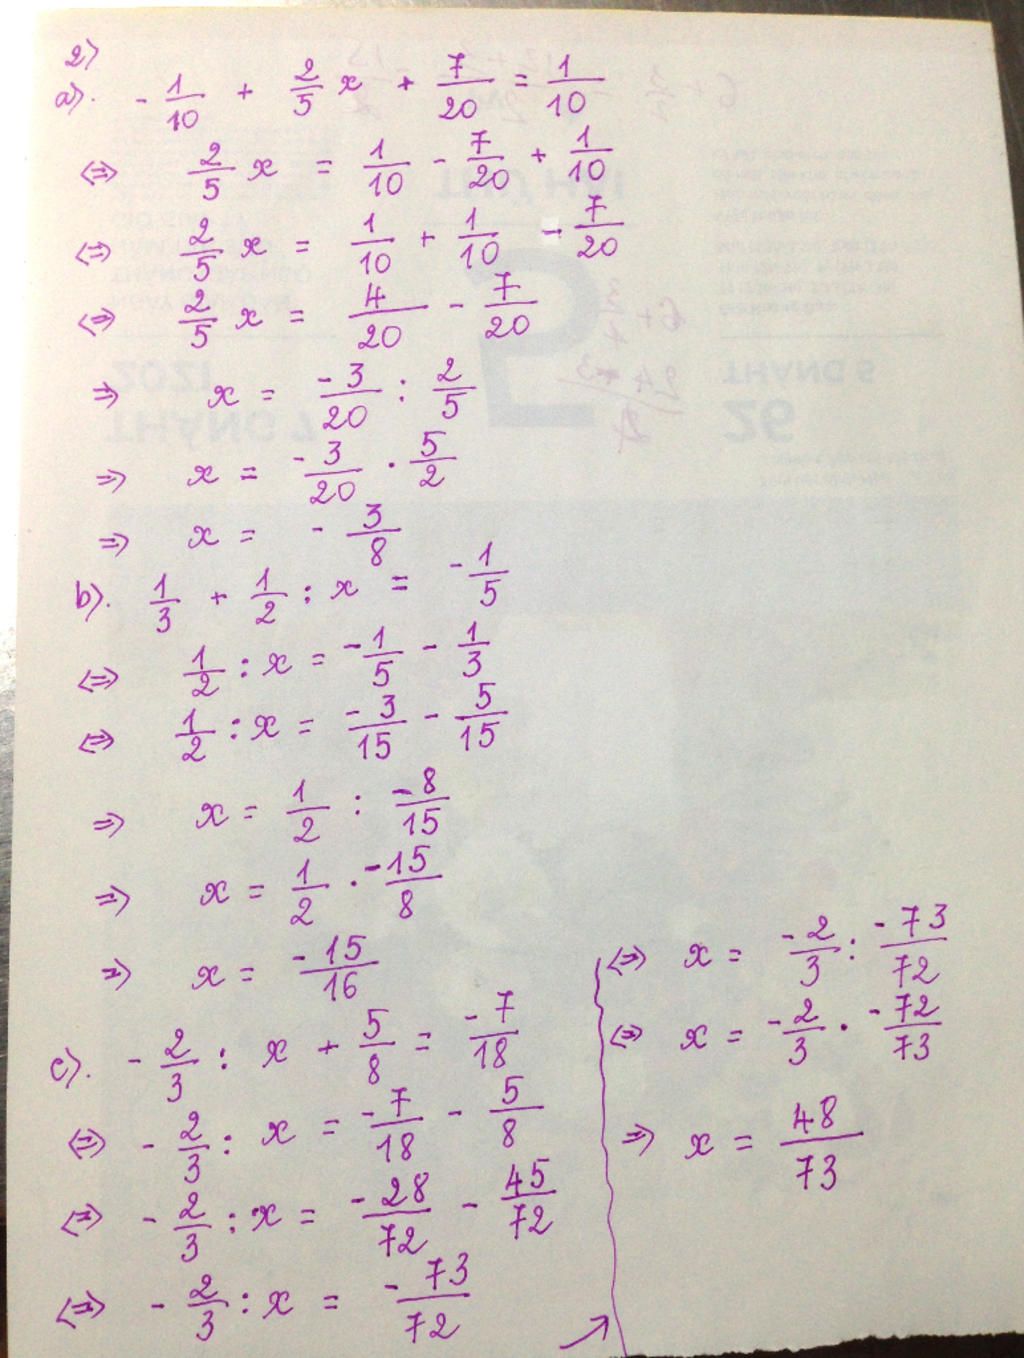 2)
a). - 1/10 + 2/5 x + 7/20 = 1/10
⇔ 2/5 x = 1/10 - 7/20 + 1/10
⇔ 2/5 x = 1/10 + 1/10 - 7/20
⇔ 2/5 x = 4/20 - 7/20
⇒ x = -3/20 : 2/5
⇒ x = -3/20 . 5/2
⇒ x = - 3/8
b). 1/3 + 1/2 : x = -1/5
⇔ 1/2 : x = -1/5 - 1/3
⇔ 1/2 : x = -3/15 - 5/15
⇒ x = 1/2 : -8/15
⇒ x = 1/2 . -15/8
⇒ x = -15/16
c). - 2/3 : x + 5/8 = -7/18
⇔ - 2/3 : x = -7/18 - 5/8
⇔ - 2/3 : x = -28/72 - 45/72
⇔ - 2/3 : x = -73/72
⇔ x = -2/3 : -73/72
⇔ x = -2/3 . -72/73
⇒ x = 48/73